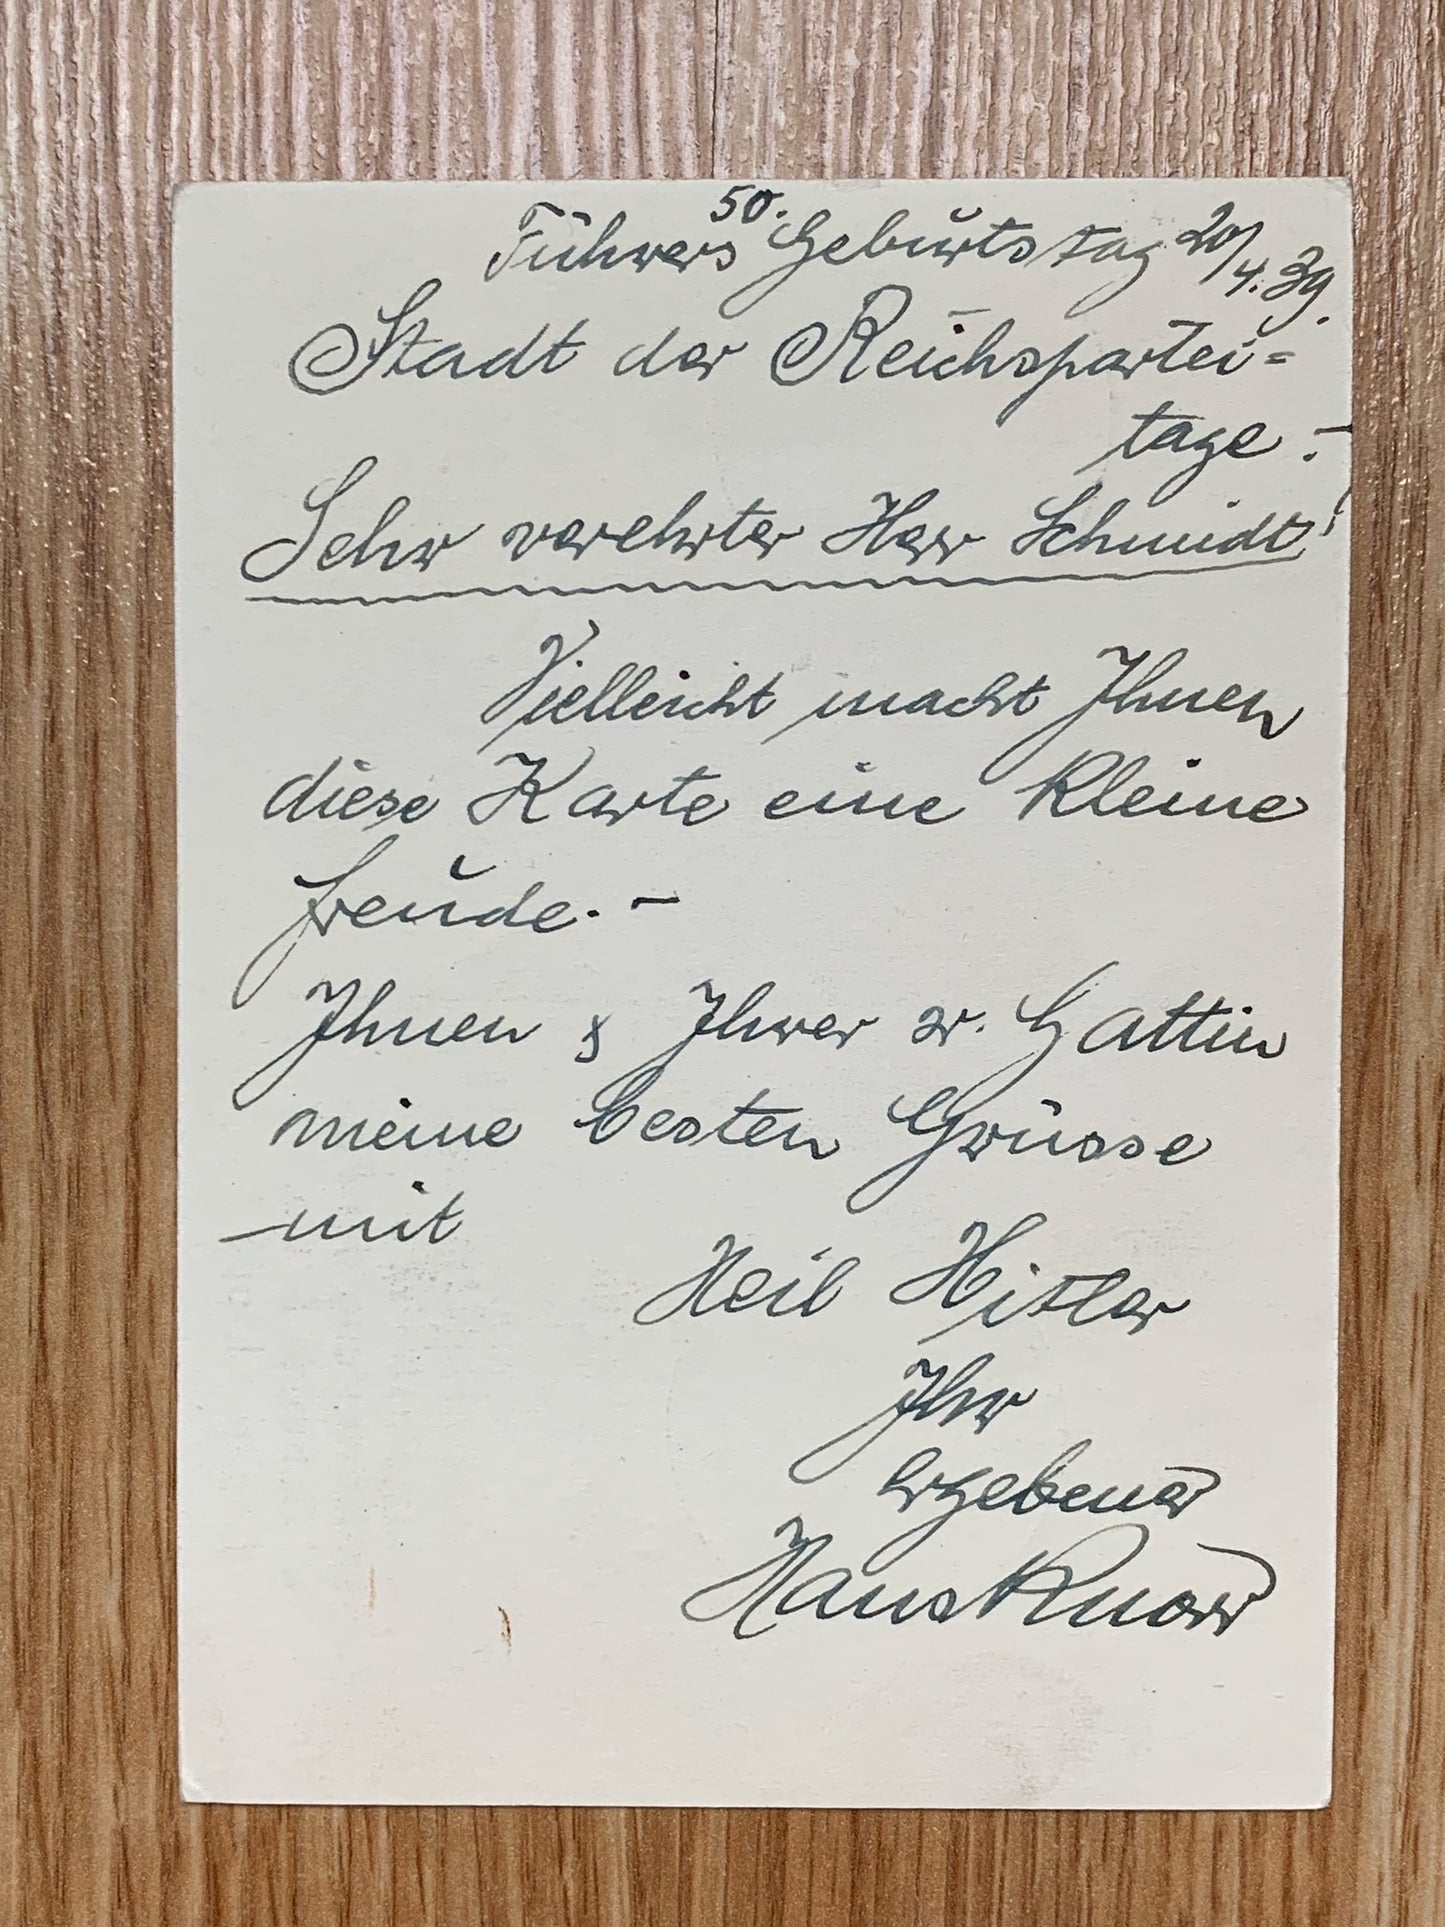 Führers 50. Geburtstag 20/4.39.
Stadt der Reichspartei=
tage. -
Sehr verehrter Herr Schmidt!
Vielleicht macht Ihnen
diese Karte eine kleine
Freude. -
Ihnen & Ihrer w. Gattin
meine besten Grüsse
mit
Heil Hitler
Ihr
ergebener
Hans Knorr